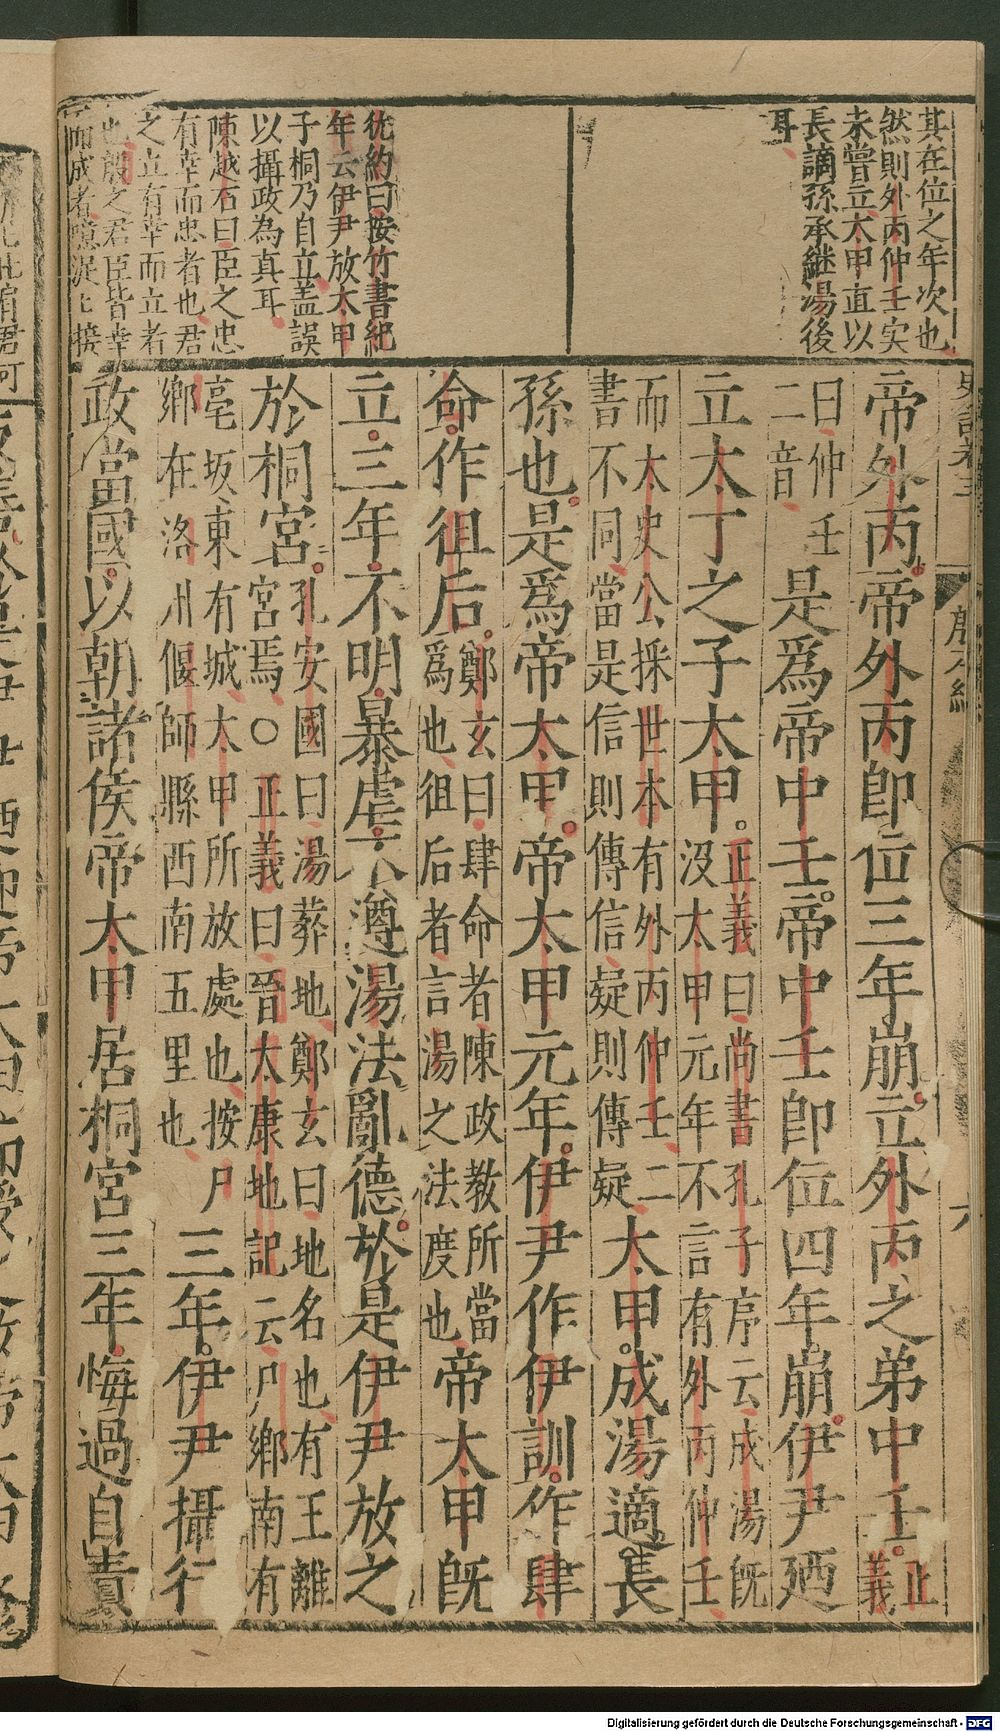 其在位之年次也
然則外丙仲壬实
未嘗立太甲直以
長謫孫承継湯後
耳
犹約曰按竹書紀
年云伊尹放太甲
子桐乃自立盖誤
以攝政為真耳
陳越石曰臣之忠
有幸而忠者也君
之立有幸而立者
也殷之君臣皆幸
而成者噫浞ヒ接
帝外丙帝外丙卽位三年崩立外丙之弟中壬正義
曰仲壬二音是爲帝中壬帝中壬卽位四年崩伊尹廼
立太丁之子太甲正義曰尚書孔子序云成湯既沒太甲元年不言有外丙仲壬
而太史公採世本有外丙仲壬二書不同當是信則傳信疑則傳疑太甲成湯適長
孫也是爲帝太甲帝太甲元年伊尹作伊訓作肆
命作徂后鄭玄曰肆命者陳政教所當爲也徂后者言湯之法度也帝太甲旣
立三年不明暴虐不遵湯法亂德於是伊尹放之
於桐宮孔安國曰湯葬地鄭玄曰地名也有王離宮焉○正義曰晉太康地記云尸鄉南有
亳坂東有城太甲所放處也按尸鄉在洛州偃師縣西南五里也三年伊尹攝行
政當國以朝諸侯帝太甲居桐宮三年悔過自責
史記卷三
殷本紀
六
Digitalisierung gefördert durch die Deutsche Forschungsgemeinschaft - DFG